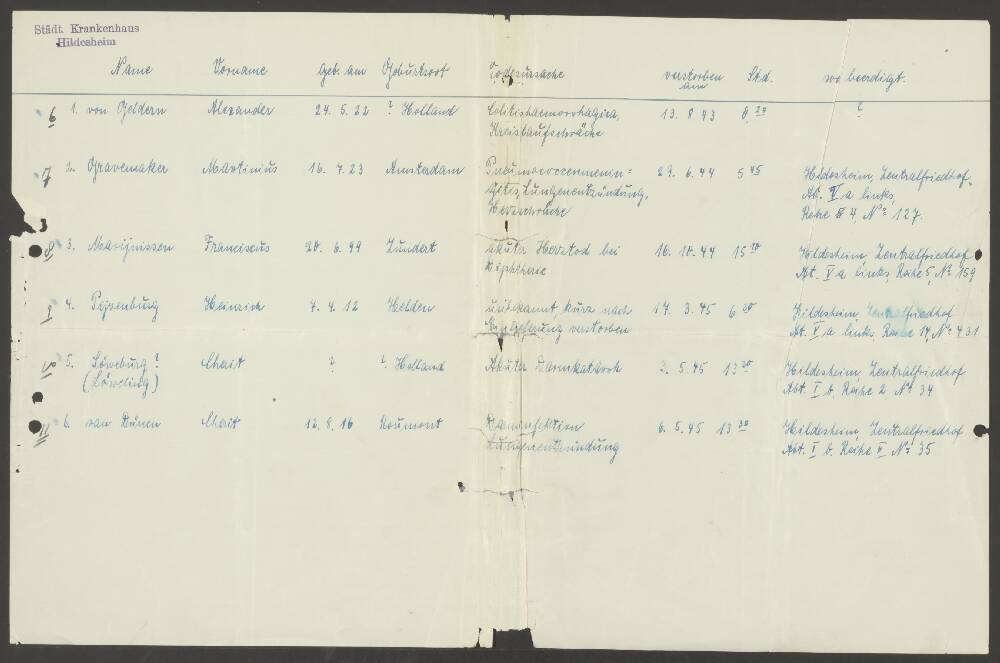 Städt. Krankenhaus
Hildesheim
Name Vorname Geb. am Geburtsort Todesursache verstorben am Std. wo beerdigt.
6 1. von Geldern Alexander 24. 5. 22 ? Holland Colitishaemorrhagica, 13. 8. 43 ?
Kreislaufschwäche
7 2. Gravemaker Martinius 16. 7. 23 Amsterdam 29. 6. 44 5 45 Hildesheim, Zentralfriedhof,
Lungenentzündung, Abt. V a links,
Herzschwäche Reihe 4, No 127.
8 3. Franciscus 28. 6. 99 Zundert akuter Herztod bei 16. 10. 44 15 20 Hildesheim, Zentralfriedhof
Diphtherie Abt. V a links, Reihe 5, No 159
9 4. Heinrich 7. 4. 12 Helden unbekannt, kurz nach 17. 3. 45 6 20 Hildesheim, Zentralfriedhof
Einlieferung verstorben Abt. V a links, Reihe 14, No 431
5. Löweburg ? Chait ? ? Holland Akuter Darmkatarrh 3. 5. 45 13 20 Hildesheim, Zentralfriedhof
(Löweling) Abt. I b. Reihe 2 No 34
11 6. van Dünen Chait 12. 8. 16 Roumont Darminfektion 6. 5. 45 13 30 Hildesheim, Zentralfriedhof
Lungenentzündung Abt. I b. Reihe II No 35